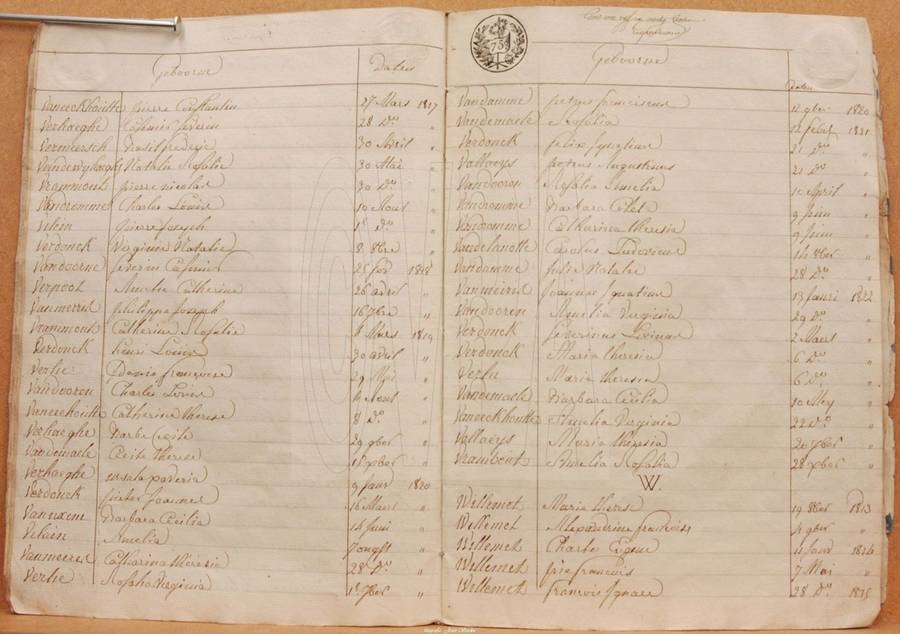 Geboorne Dates
Vaneeckhoutte pierre Constantin 27 Mars 1817
Verhaeghe Casimir Severin 28 Do "
Vermeersch Basil frederic 30 Avril "
Natalie Rosalie 30 Mai "
Vrommont pierre nicolas 30 Do "
Vandromme Charles Louis 10 Aout "
Vilein pierre joseph 18 Do "
Verdonck Virginie Natalie 8 8bre "
Vandoorne Severin Casimir 25 fev 1818
Verpoot Amelie Catherine 26 avril "
Vanmerris philippe Joseph 16 7bre "
Vrammont Catherine Rosalie 8 Mars 1819
Verdonck henri Louis 30 avril "
Verlie francoise 29 Mai "
Vandooren Charles Louis 4 Aout "
Vaneeckhoutte Catherine therese 8 Do "
Verhaeghe Barbe Cecile 29 9ber "
Vandemaele Cecile therese 18 9ber "
Verhaeghe ursula 9 Janr 1820
Verdonck pieter Joannes 16 Maert "
Barbara Cecilia 14 Juni "
Vilain Amelia 7 ougst "
Vanmeeres Catharina theresia 28 Do "
Verlie Rosalia Virginia 1 7ber "
Geboorne Daten
Vandamme petrus franciscus 11 9ber 1820
Vandemaele Rosalia 12 febr 1821
Verdonck felix Ignatius 21 Do "
Vallaeys petrus Augustinus 21 Do "
Vandooren Rosalia Amelia 10 April "
Vandromme Barbara 9 Juni "
Vandromme Catharina theresia 9 Juni "
Vandelanotte Carolus Ludovicus 14 8ber "
Vandamme Julie Natalie 28 Do "
Vanmeirris Joannes Ignatius 13 Janri 1822
Vandooren Amelia Virginia 29 Do "
Verdonck Severinus 2 Maert "
Verdonck Maria theresia 6 Do "
Verlie Maria theresia 6 Do "
Vandemaele Barbara Cecilia 10 Mey "
Vaneeckhoutte Amelia Virginia 22 Do "
Vallaeys Maria theresia 20 7ber "
Vrambout Amelia Rosalia 28 9ber "
W.
Willemot Marie therese 19 8ber 1813
Willemet Alexandrine francoise 4 9ber "
Willemet Charles 11 Janr 1814
Willemet francois 7 Mai "
Willemot francois Ignace 28 Do 1815